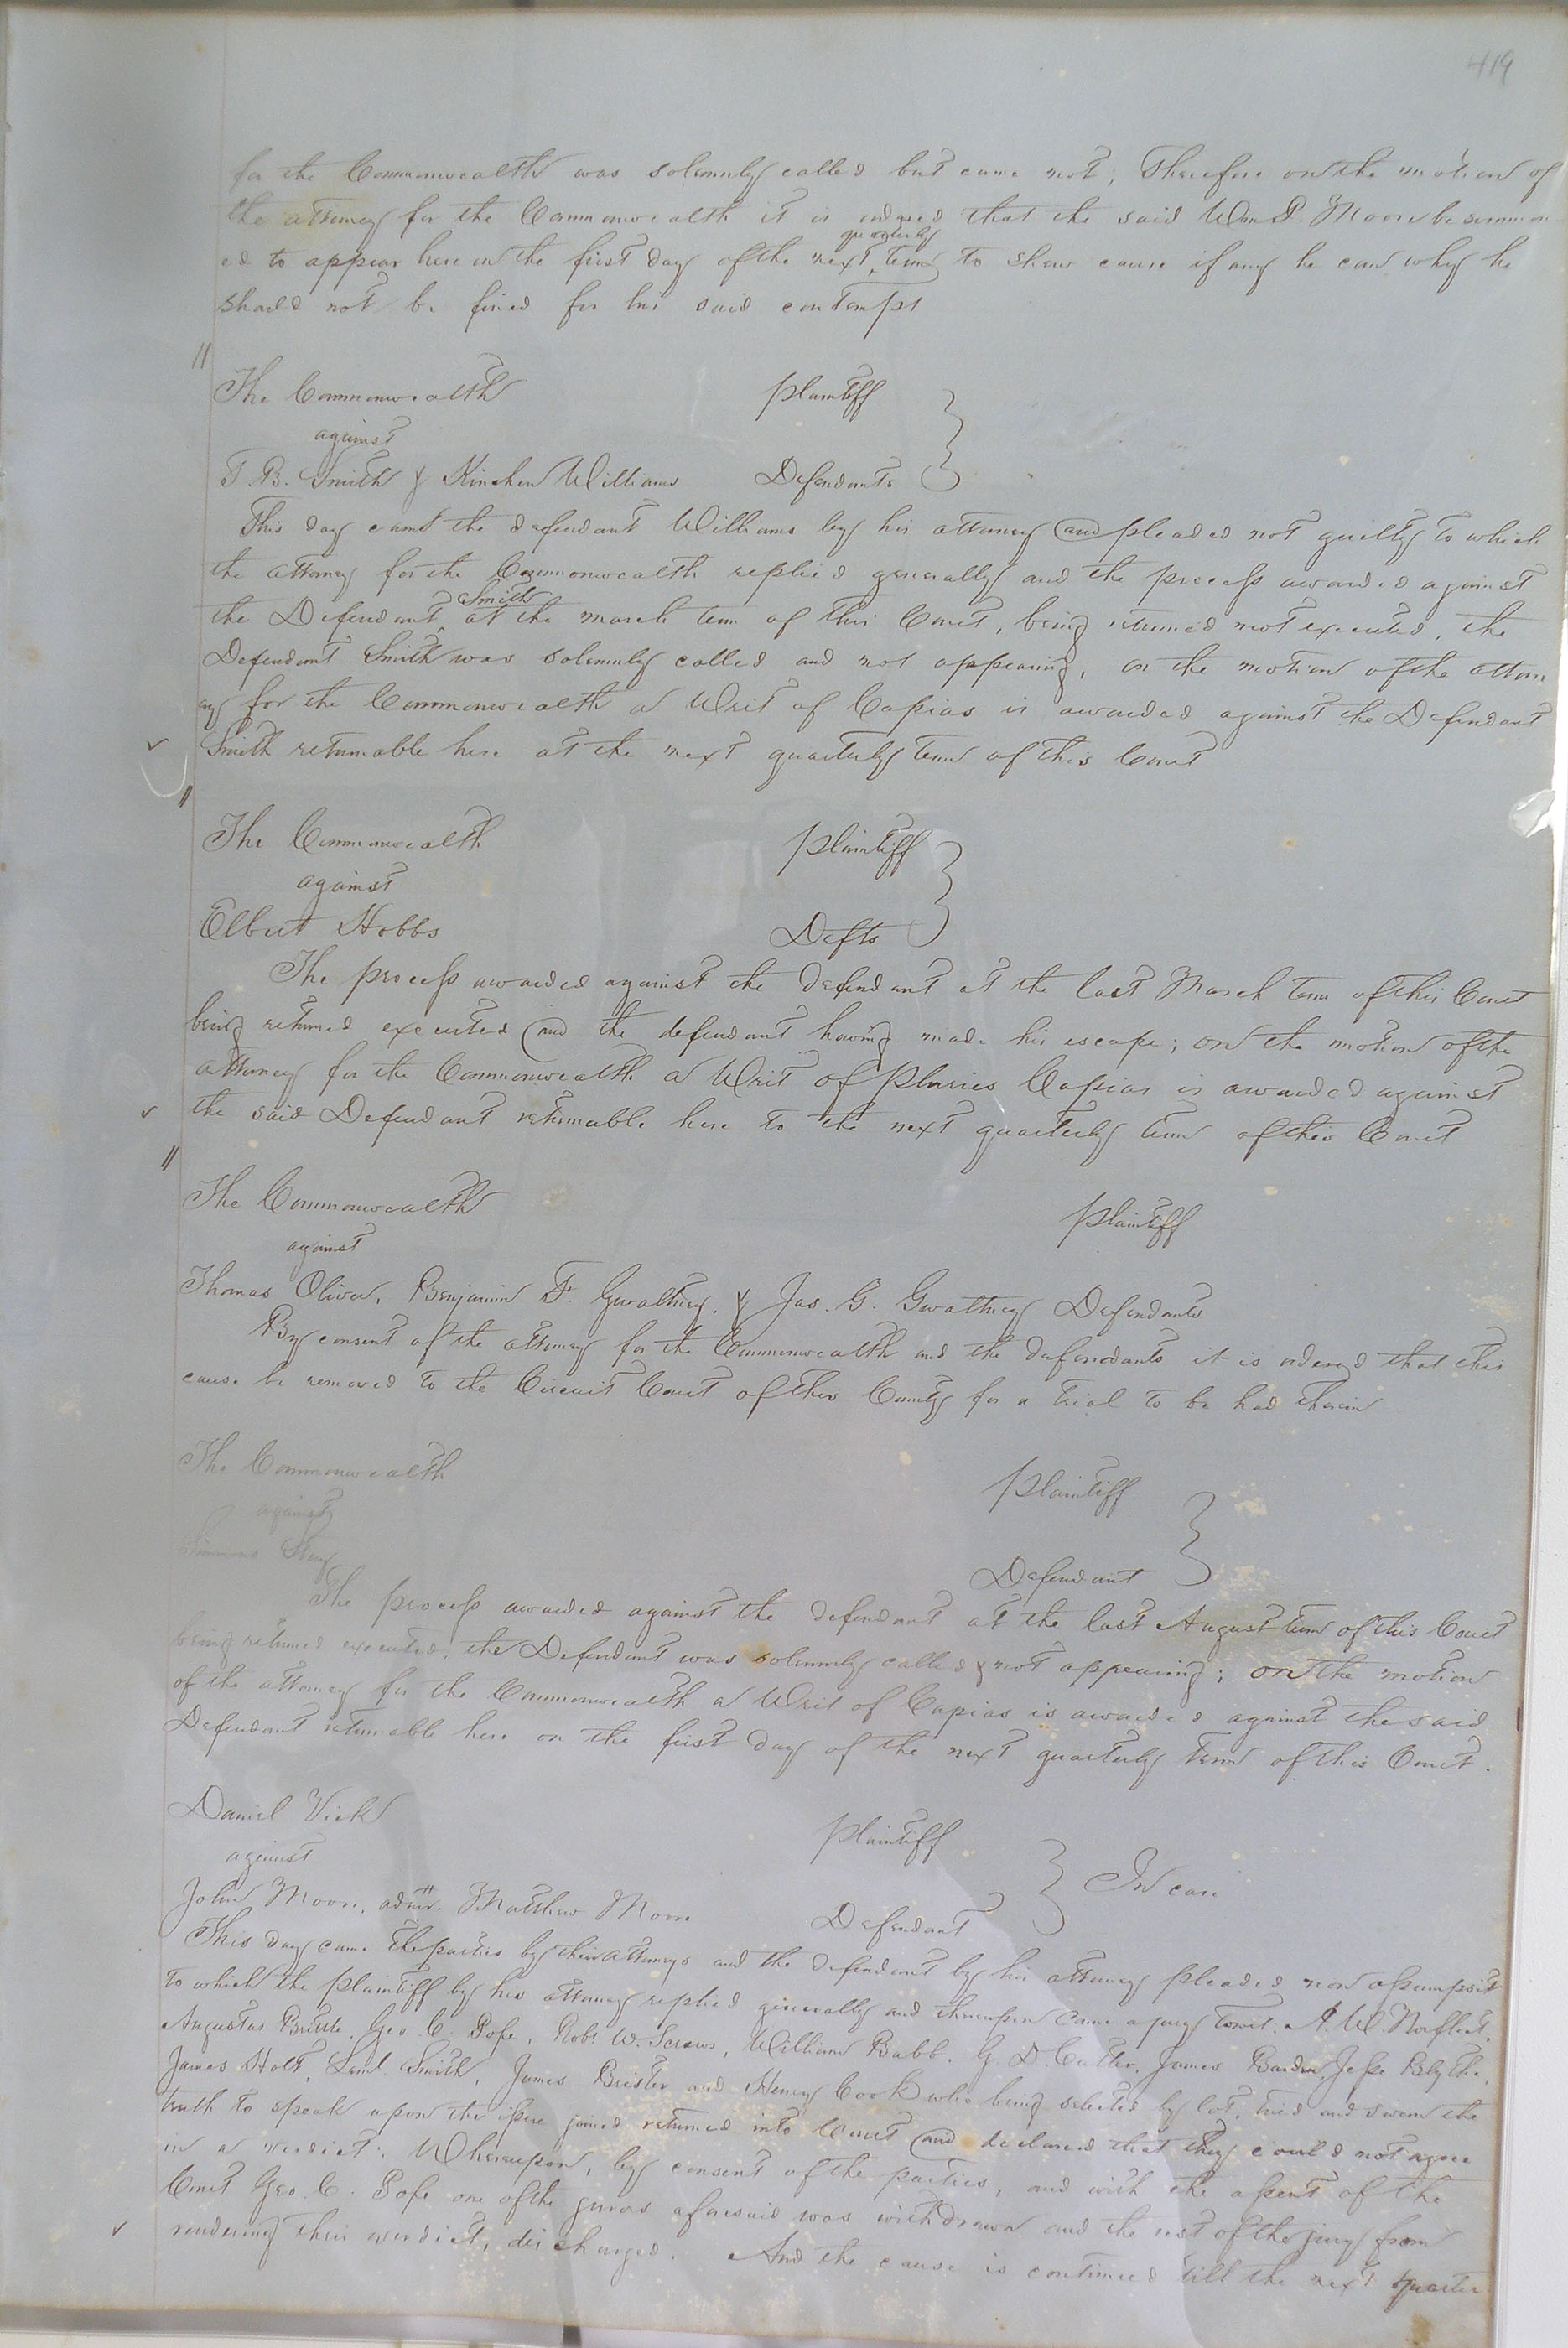 419
for the Commonwealth was solemnly called but came not; Therefore on the motion of
the attorney for the Commonwealth it is ordered that the said Wm. P. Moore be summon
quarterly
ed to appear here on the first day of the next term to shew cause if any he can why he
should not be fined for his said contempt
The Commonwealth Plaintiff
against
T. B. Smith & Kinchen Williams Defendants
This day came the defendant Williams by his attorney and pleaded not guilty to which
the attorney for the Commonwealth replied generally and the process awarded against
Smith
the Defendant at the march term of this Court, being returned not executed, the
Defendant Smith was solemnly called and not appearing, on the motion of the attorn
ey for the Commonwealth a Writ of Capias is awarded against the Defendant
Smith returnable here at the next quarterly term of this Court
The Commonwealth Plaintiff
against
Elbert Hobbs Defts
The process awarded against the defendant at the last March term of this Court
being returned executed and the defendant having made his escape; on the motion of the
attorney for the Commonwealth a Writ of Pluries Capias is awarded against
the said Defendant returnable here to the next quarterly term of this Court
The Commonwealth Plaintiff
against
Thomas Oliver, Benjamin F. Gwathney, & Jas. G. Gwathney Defendants
By consent of the attorney for the Commonwealth and the defendants it is ordered that this
cause be removed to the Circuit Court of this County for a trial to be had therein
The Commonwealth Plaintiff
against
Simmons Defendant
The process awarded against the defendant at the last August term of this Court
being returned executed; the Defendant was solemnly called & not appearing; on the motion
of the attorney for the Commonwealth a Writ of Capias is awarded against the said
Defendant returnable here on the first day of the next quarterly term of this Court.
Daniel Vick Plaintiff
against In case
John Moore, admr. Matthew Moore Defendant
This day came the parties by their attorneys and the defendant by his attorney pleaded non assumpsit
to which the plaintiff by his attorney replied generally and thereupon came a jury towit: A. W. Norfleet,
Augustus Brittle, Geo. C. Pope, Robt W. Screws, William Babb, G. D. Cutler, James Barden, Jesse Blythe,
James Holt, Saml. Smith, James Brister and Henry Cook who being selected by lot, tried and sworn the
truth to speak upon the issue joined returned into Court and declared that they could not agree
in a verdict: Whereupon, by consent of the parties, and with the assent of the
Court Geo. C. Pope one of the jurors aforesaid was withdrawn and the rest of the jury from
rendering their verdict, discharged. And the cause is continued till the next quarter